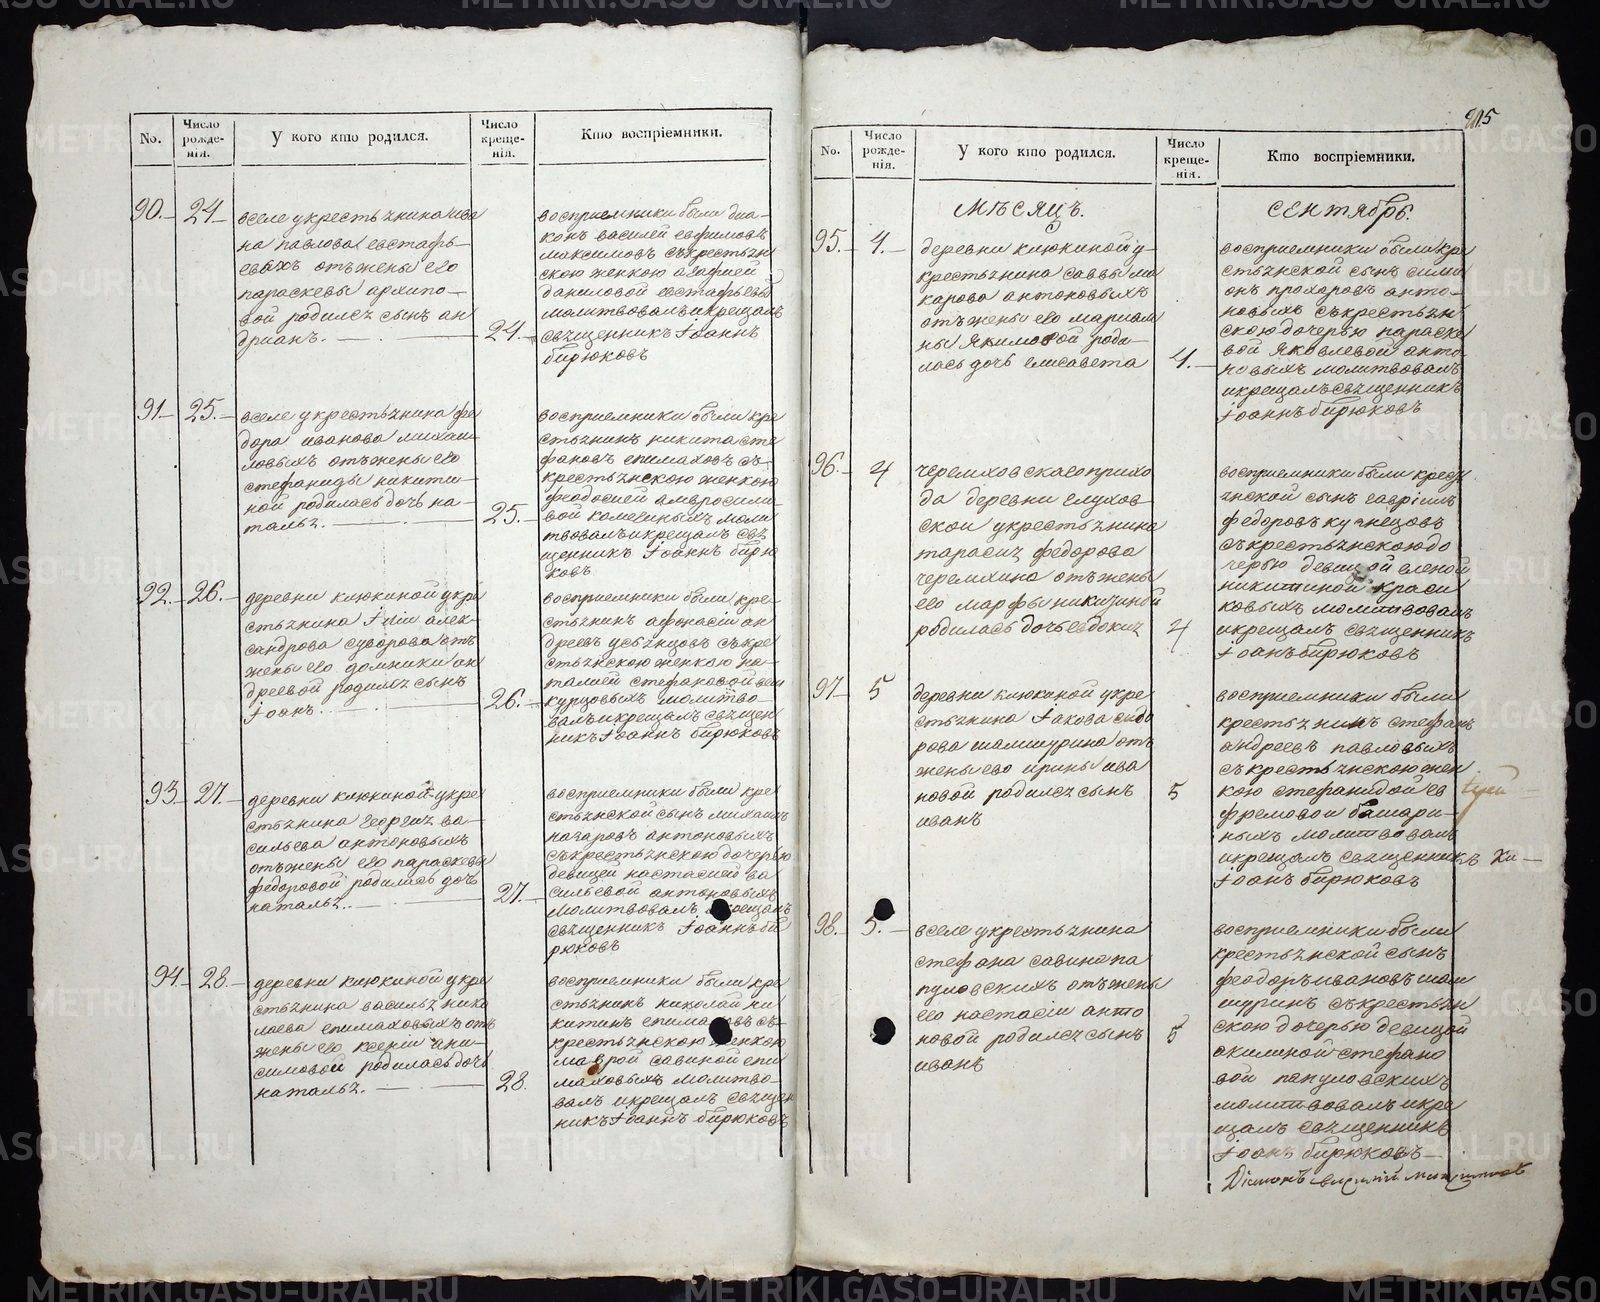 No.
Число рожде-нія.
У кого кто родился.
Число креще-нія.
Кто воспріемники.
90.
24
вселе укрестьянина ива
на павлова евстафь
евыхъ отъжены его
параскевы архипо
вой родился сынъ ан
дрианъ.
24
восприемники были диа
конъ василей евфимовъ
максимовъ съкрестьян
скою женкою агафией
даниловой евстафьевы
молитвовалъикрещалъ
священникъ Iоаннъ
бирюковъ
91
25.
вселе укрестьянина фе
дора иванова михаи
ловыхъ отъжены его
стефаниды никити
ной родиласьдочь на
талья.
25.
восприемники были кре
стьянинъ никита сте
фановъ епимаховъ съ
крестьянскою женкою
феодосией амвросили
вой
моли
твовалъикрещалъ свя
щенникъ Iоаннъ бирю
ковъ
92.
26.
деревни клюкиной укре
стьянина Iлiи алек
сандрова суворова отъ
жены его домники ан
древой родился сынъ
Iоанъ.
26.
восприемники были кре
стьянинъ афонасiй ан
древъ съкре
стьянскою женкою на
талией стефановой
молитво
валъикрещалъ священ
никъ Iоаннъ бирюковъ
93
27.
деревни клюкиной укре
стьянина георгия ва
сильева антоновыхъ
отъжены его параскевы
федоровой родилась дочь
наталья.
27.
восприемники были кре
стьянской сынъ михаилъ
назаровъ антоновыхъ
съкрестьянскою дочерью
девицей настасией ва
сильевой антоновыхъ
молитвовалъ икрещалъ
священникъ Iоаннъ би
рюковъ
94
28.
деревни клюкиной укре
стьянина василья нико
лаева епимаховыхъ отъ
жены его ксении ани
симовой родиласьдочь
наталья.
28
восприемники были кре
стьянинъ николай ни
китинъ епимаховъ съ
крестьянскою женкою
маврой савиной епи
маховыхъ молитво
валъ икрещалъ священ
никъ Iоаннъ бирюковъ
No.
Число рожде-нія.
У кого кто родился.
Число креще-нія.
Кто воспріемники.
мѣсяцъ.
сентябрь.
95.
1.
деревни клюкиной у
крестьянина саввы ма
карова антоновыхъ
отъжены его мариам
ны якимовой роди
лась дочь елисавета
1.
восприемники были кре
стьянской сынъ сими
онъ прохоровъ анто
новыхъ съкрестьян
скою дочерью параске
вой яковлевой анто
новыхъ молитвовалъ
икрещалъ священникъ
Iоаннъ бирюковъ
96.
4
черемховскаго прихо
да деревни глухов
скои укрестьянина
тарасия федорова
черемхина отъжены
его марфы никитиной
родилась дочь евдокия
4
восприемники были крестья
янской сынъ гаврiилъ
федоровъ кузнецовъ
съкрестьянскою до
черью девицой еленой
никитиной краси
ковыхъ молитвовалъ
икрещалъ священникъ
Iоанъ бирюковъ
97
5
деревни клюкиной укре
стьянина Iакова сидо
рова шамшурина отъ
жены его ирины ива
новой родился сынъ
иванъ
5
восприемники были
крестьянинъ стефанъ
андреевъ павловыхъ
съкрестьянскою жен
кою стефанидой ев
фремовой
молитвовалъ
икрещалъ священникъ
Iоанъ бирюковъ
98.
5.
вселе укрестьянина
стефана савина па
пуловскихъ отъжены
его настасiи анто
новой родился сынъ
иванъ
5
восприемники были
крестьянской сынъ
феодоръ ивановъ шам
шуринъ съкрестьян
скою дочерью девицой
акилиной стефано
вой папуловскихъ
молитвовалъ икре
щалъ священникъ
Iоанъ бирюковъ
Дiаконъ василий максимовъ
METRIKI.GASO-URAL.RU